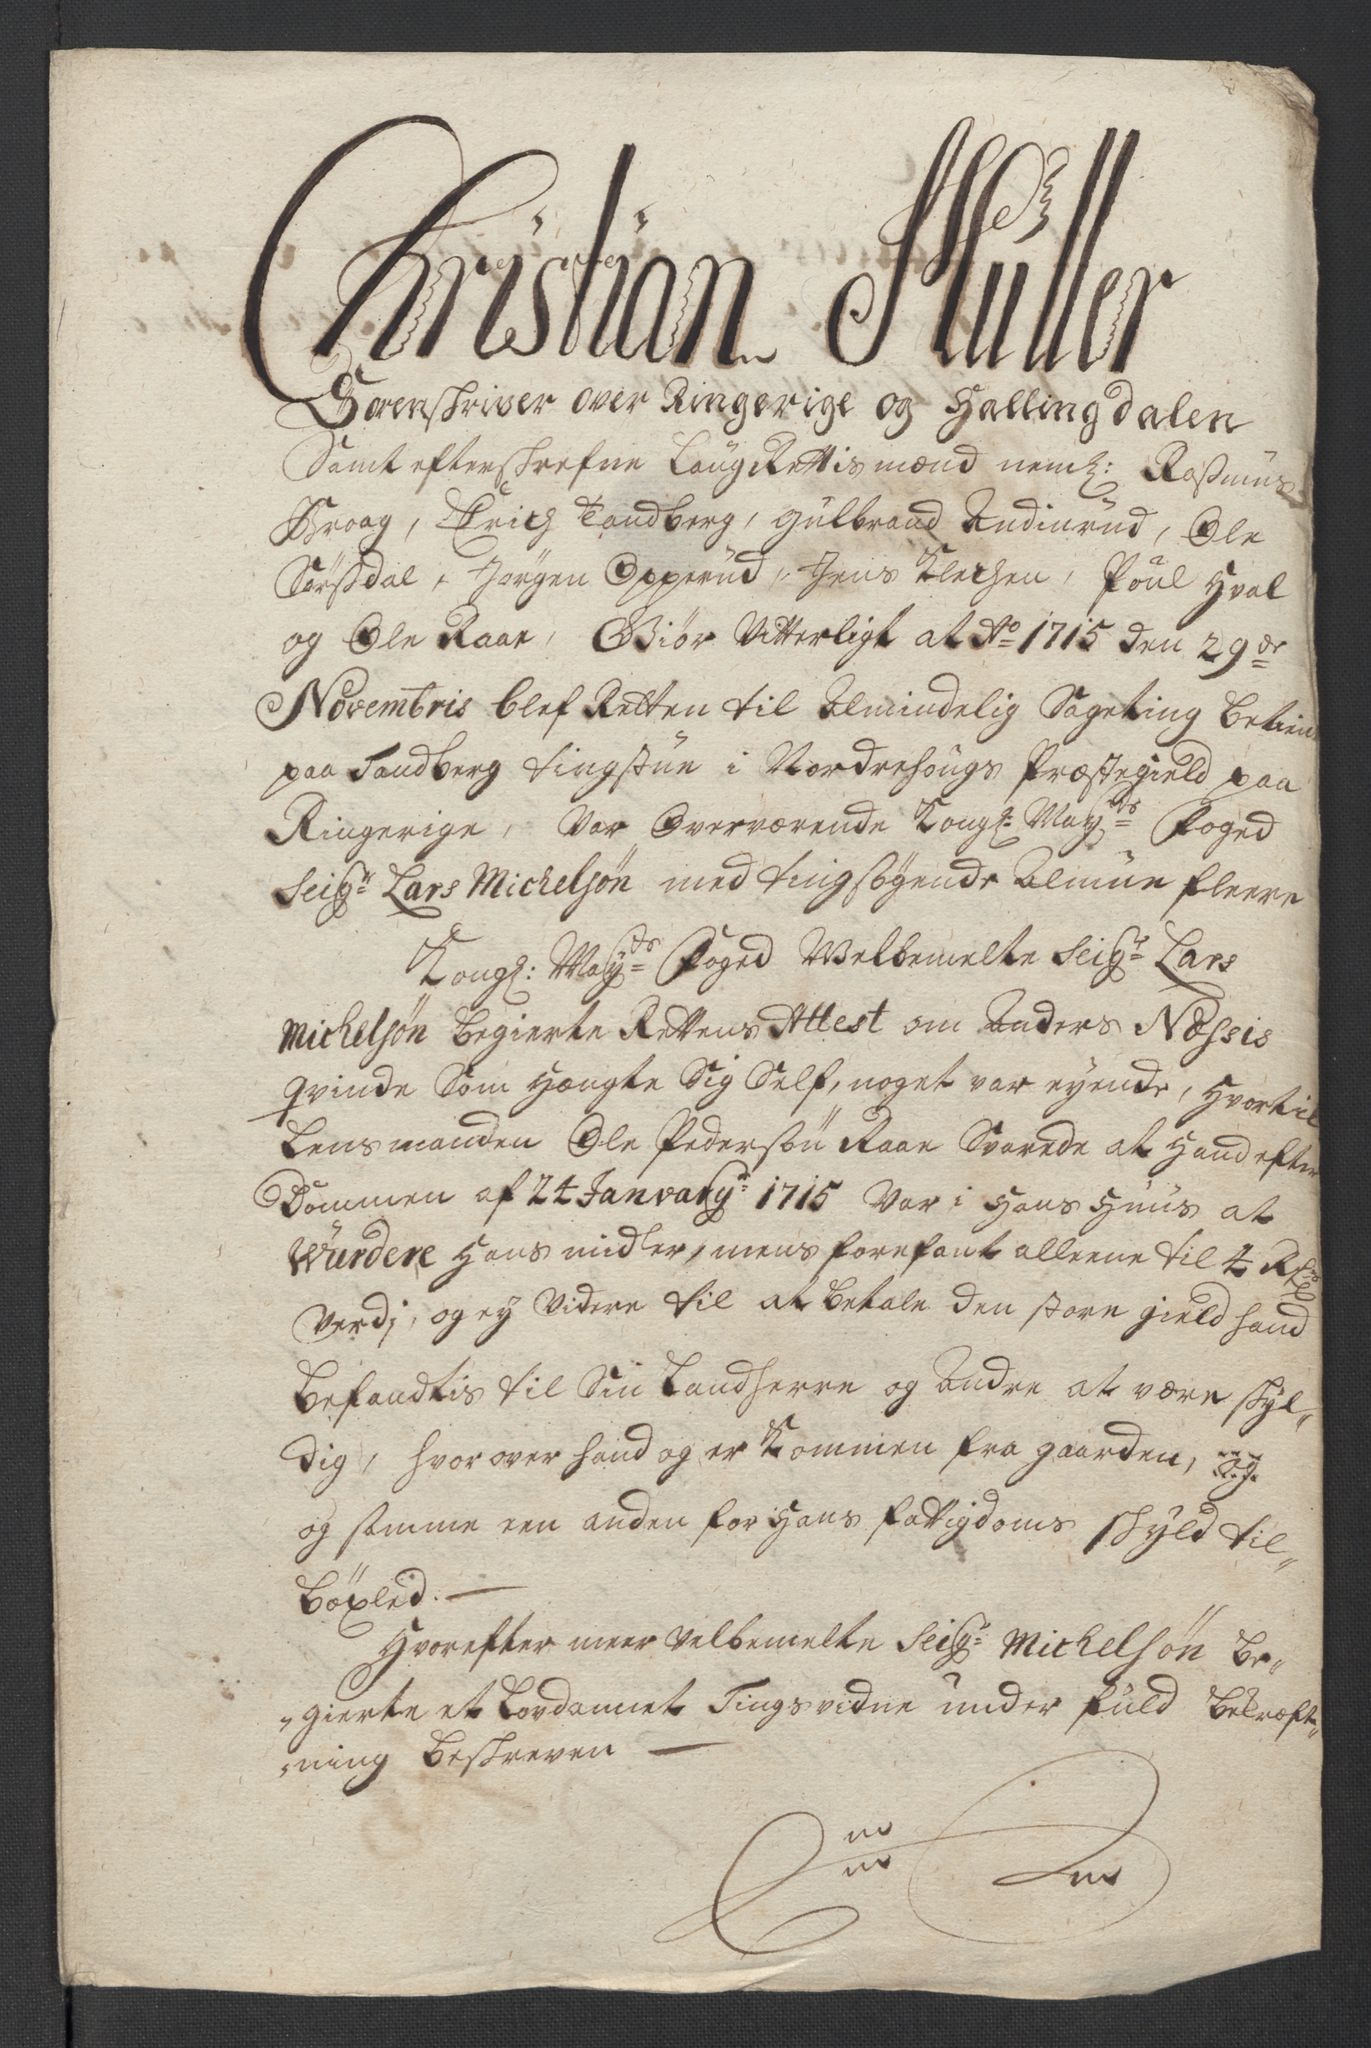 Christian Müller
Sorenskriver over Ringerige og Hallingdalen
Samt efterschrefne LaugRettis mænd neml: Rasmus
Braag, Erich Tandberg, Gulbrand Andinrud, Ole
Sørsdal, Jørgen Opperud, Jens Klechen, Poul Hval
og Ole Raae, Giør Vitterligt at Ao 1715 den 29de
Novembris blef Retten til Almindelig Sageting betien
paa Tandberg tingstue i Nordrehougs Præstegield paa
Ringerige, Var Overværende Kongl: Mayts Foged
Seigr Lars Michelsøn med tingsøgende Almue fleere
Kongl: Mayts Foged Welbemelte Seigr Lars
Michelsøn begierte Rettens Attest om Anders Næssis
qvinde Som Hængte Sig Self, noget var eyende, Hvortil
Lensmanden Ole Pedersøn Raae Svarede at Hand efter
Dommen af 24 January 1715 Var i Hans Huus at
Wurdere Hans midler, mens forefant alleene til 4 Rdrs
Verdj, og ey Videre til at betale den store gield hand
befandtis til Sin Landherre og Andre at være skyl-
dig, hvorover hand og er Kommen fra gaarden, og
og samme een anden for Hans fattigdoms skyld til-
bøxled.
Hvorefter meer velbemelte Seigr Michelsøn be-
gierte et Lovdannet Tingsvidne under fuld bekræft-
ning beskreven